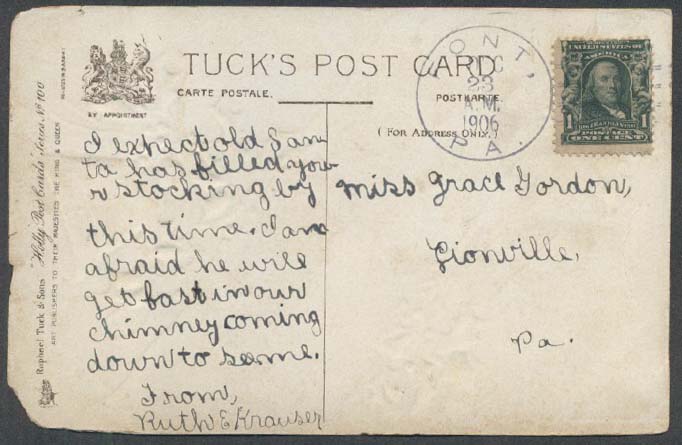 TUCK'S POST CARD
CARTE POSTALE.
POSTKARTE.
BY APPOINTMENT
( FOR ADDRESS ONLY. )
Raphael Tuck & Sons "Holly" Post Cards Series No 100
ART PUBLISHERS TO THEIR MAJESTIES THE KING & QUEEN
ONT,
23
A.M.
1906
PA.
UNITED STATES OF AMERICA
1 1
POSTAGE
ONE CENT
I expect old San
ta has filled you
r stocking by
this time. I am
afraid he will
get fast in our
chimney coming
down to same.
From,
Ruth E Krauser
Miss Grace Gordon,
Lionville,
Pa.